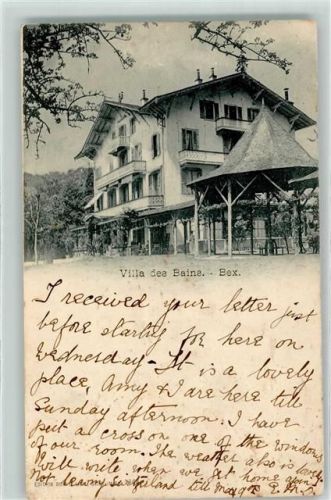 Villa des Bains. - Bex.
I received your letter just
before starting for here on
Wednesday - It is a lovely
place, Amy & I are here till
Sunday afternoon. I have
put a cross on one of the windows
of our room. The weather also is lovely
Will write when we get home again
Not leaving Switzerland till May